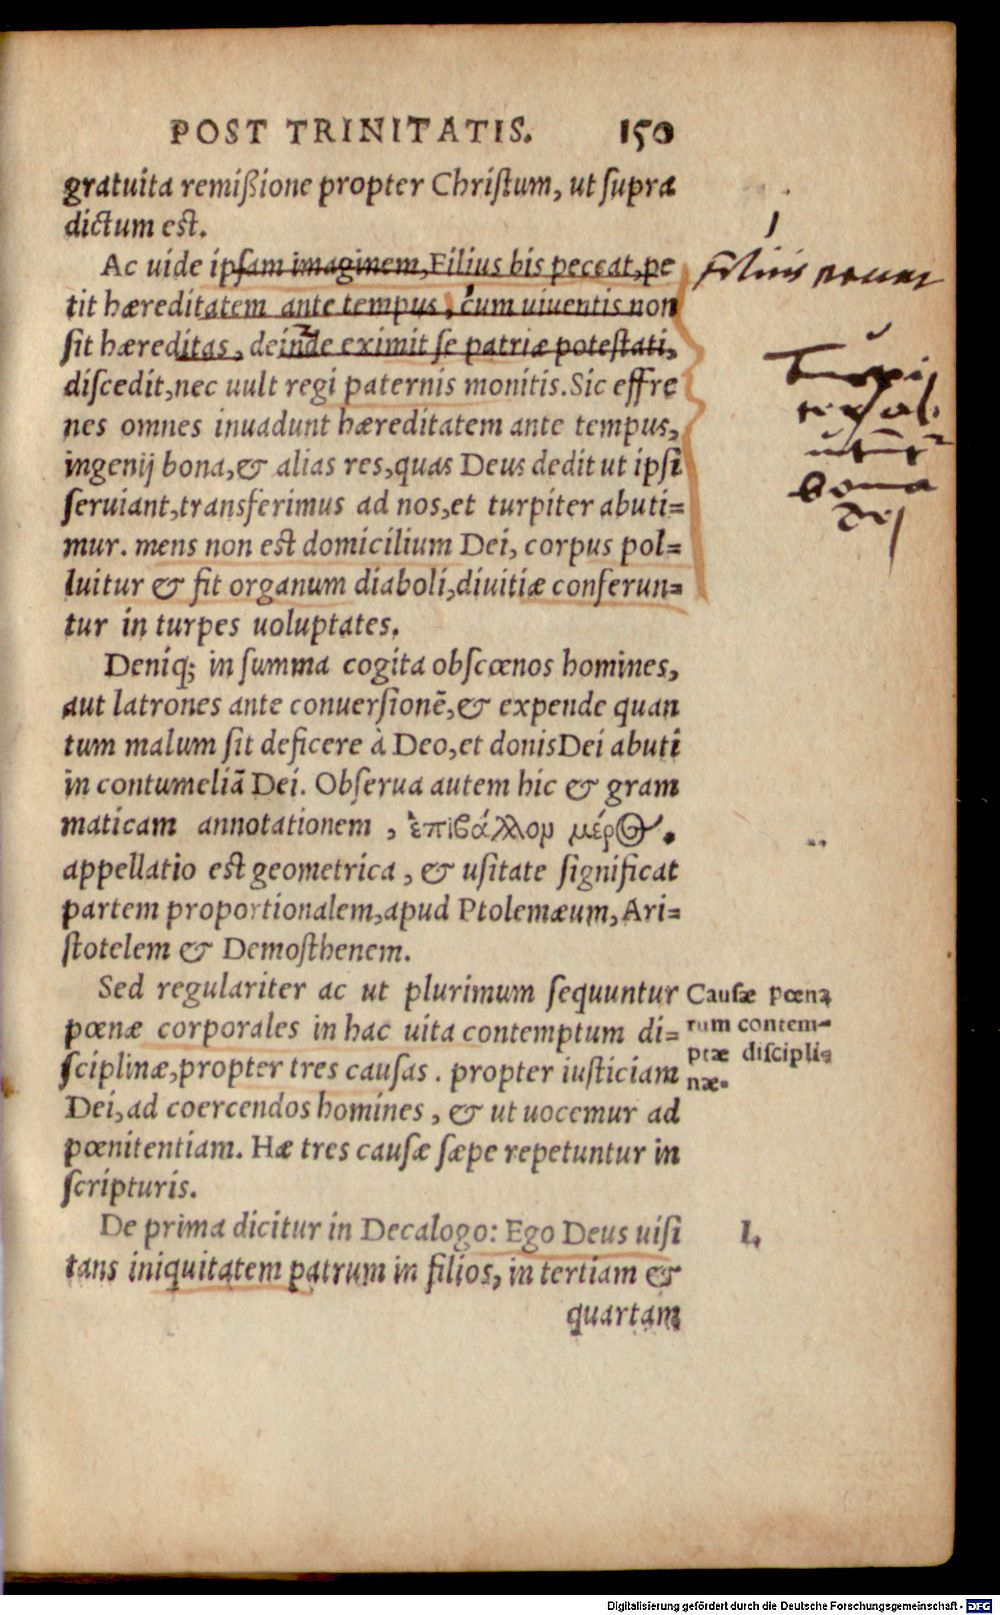 POST TRINITATIS. 150
gratuita remißione propter Chriſtum, ut ſupra
dictum eſt.
Ac uide ipſam imaginem, Filius bis peccat, pe
tit hæreditatem ante tempus, cum uiuentis non
ſit hæreditas, deinde eximit ſe patriæ poteſtati,
diſcedit, nec uult regi paternis monitis. Sic effre
nes omnes inuadunt hæreditatem ante tempus,
ingenij bona, & alias res, quas Deus dedit ut ipſi
ſeruiant, transferimus ad nos, et turpiter abuti=
mur. mens non eſt domicilium Dei, corpus pol=
luitur & fit organum diaboli, diuitiæ conferun=
tur in turpes uoluptates.
Deniq; in ſumma cogita obſcœnos homines,
aut latrones ante conuerſionē, & expende quan
tum malum ſit deficere à Deo, et donis Dei abuti
in contumeliā Dei. Obſerua autem hic & gram
maticam annotationem, ἐπιβάλλον μέρος.
appellatio eſt geometrica, & uſitate ſignificat
partem proportionalem, apud Ptolemæum, Ari=
ſtotelem & Demoſthenem.
Sed regulariter ac ut plurimum ſequuntur
pœnæ corporales in hac uita contemptum di=
ſciplinæ, propter tres cauſas. propter iuſticiam
Dei, ad coercendos homines, & ut uocemur ad
pœnitentiam. Hæ tres cauſæ ſæpe repetuntur in
ſcripturis.
De prima dicitur in Decalogo: Ego Deus uiſi
tans iniquitatem patrum in filios, in tertiam &
quartam
filius
bona
dej
Cauſæ pœna
rum contem=
ptæ diſcipli=
næ.
I.
Digitalisierung gefördert durch die Deutsche Forschungsgemeinschaft - DFG